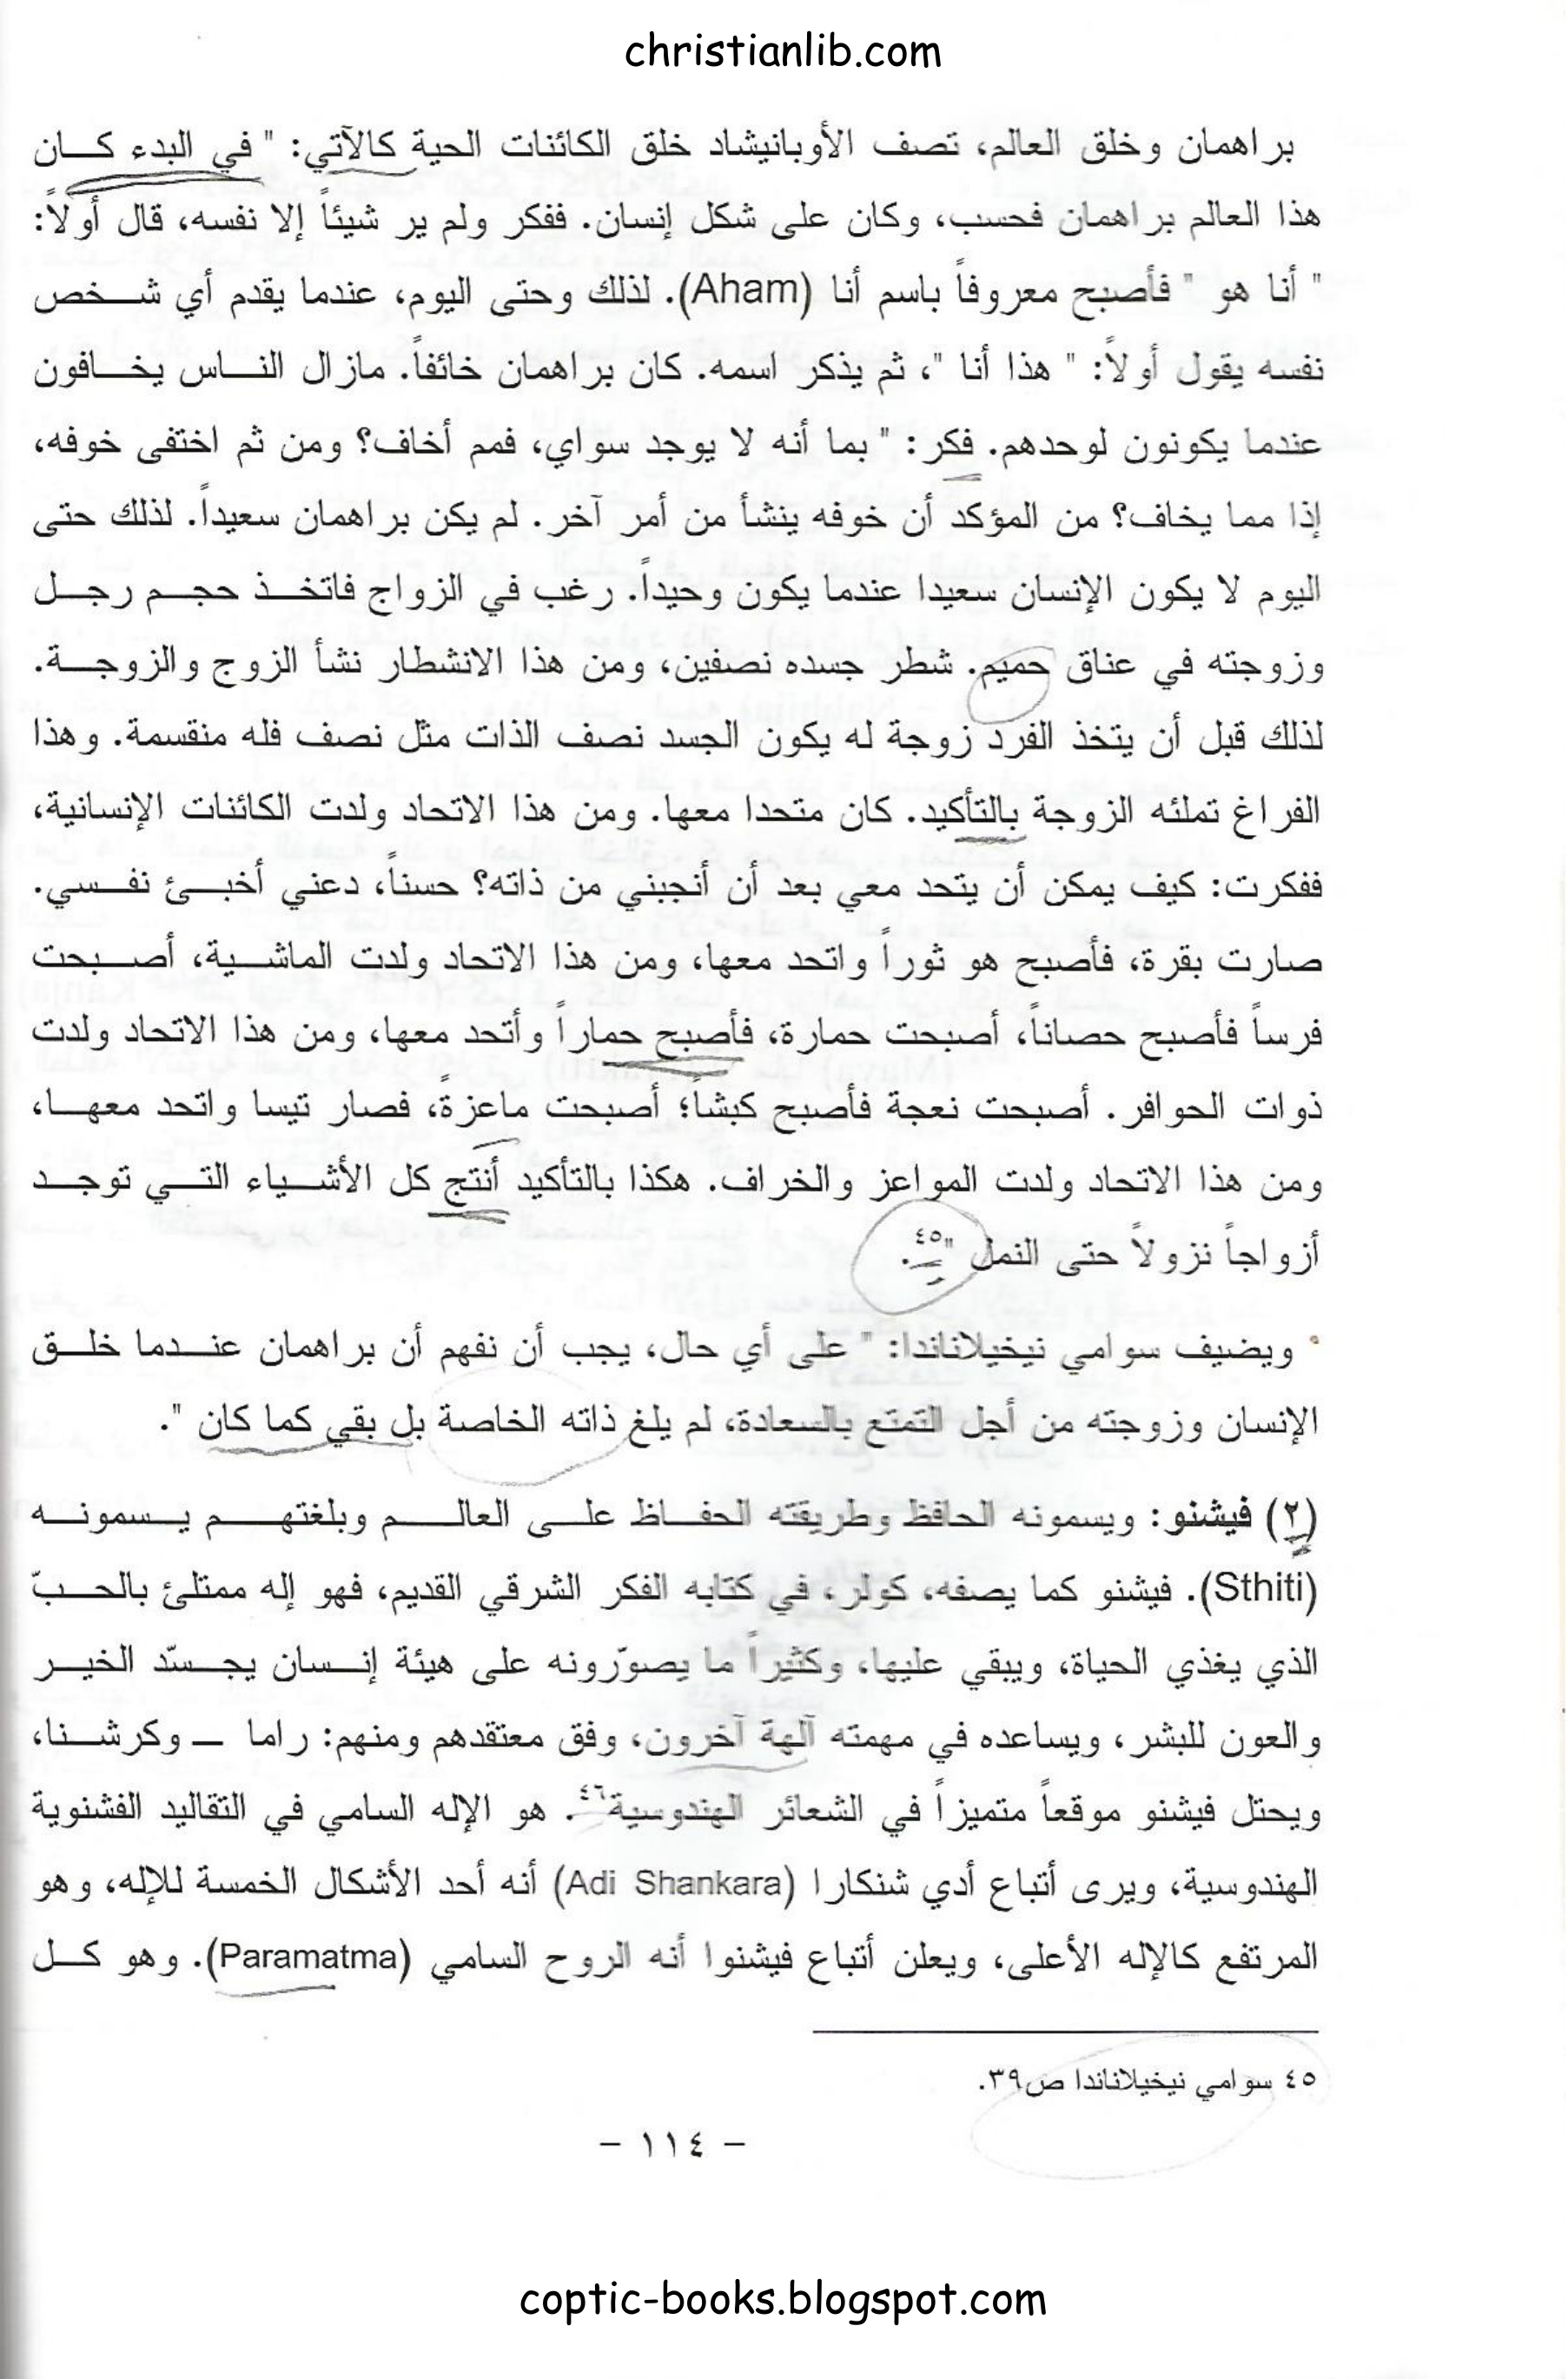 christianlib.com
براهمان وخلق العالم، تصف الأوبانيشاد خلق الكائنات الحية كالآتي: " في البدء كان
هذا العالم براهمان فحسب، وكان على شكل إنسان. ففكر ولم ير شيئاً إلا نفسه، قال أولاً:
" أنا هو " فأصبح معروفاً باسم أنا (Aham). لذلك وحتى اليوم، عندما يقدم أي شخص
نفسه يقول أولاً: " هذا أنا "، ثم يذكر اسمه. كان براهمان خائفاً. مازال الناس يخافون
عندما يكونون لوحدهم. فكر: " بما أنه لا يوجد سواي، فمم أخاف؟ ومن ثم اختفى خوفه،
إذا مما يخاف؟ من المؤكد أن خوفه ينشأ من أمر آخر. لم يكن براهمان سعيداً. لذلك حتى
اليوم لا يكون الإنسان سعيدا عندما يكون وحيداً. رغب في الزواج فاتخذ حجم رجل
وزوجته في عناق حميم. شطر جسده نصفين، ومن هذا الانشطار نشأ الزوج والزوجة.
لذلك قبل أن يتخذ الفرد زوجة له يكون الجسد نصف الذات مثل نصف فله منقسمة. وهذا
الفراغ تملئه الزوجة بالتأكيد. كان متحدا معها. ومن هذا الاتحاد ولدت الكائنات الإنسانية،
ففكرت: كيف يمكن أن يتحد معي بعد أن أنجبني من ذاته؟ حسناً، دعني أخبئ نفسي.
صارت بقرة، فأصبح هو ثوراً واتحد معها، ومن هذا الاتحاد ولدت الماشية، أصبحت
فرساً فأصبح حصاناً، أصبحت حمارة، فأصبح حماراً وأتحد معها، ومن هذا الاتحاد ولدت
ذوات الحوافر. أصبحت نعجة فأصبح كبشاً؛ أصبحت ماعزةً، فصار تيسا واتحد معها،
ومن هذا الاتحاد ولدت المواعز والخراف. هكذا بالتأكيد أنتج كل الأشياء التي توجد
أزواجاً نزولاً حتى النمل "٤٥.
• ويضيف سوامي نيخيلاناندا: " على أي حال، يجب أن نفهم أن براهمان عندما خلق
الإنسان وزوجته من أجل التمتع بالسعادة، لم يلغ ذاته الخاصة بل بقي كما كان ".
(٢) فيشنو: ويسمونه الحافظ وطريقته الحفاظ على العالم وبلغتهم يسمونه
(Sthiti). فيشنو كما يصفه، كولر، في كتابه الفكر الشرقي القديم، فهو إله ممتلئ بالحبّ
الذي يغذي الحياة، ويبقي عليها، وكثيراً ما يصوّرونه على هيئة إنسان يجسّد الخير
والعون للبشر، ويساعده في مهمته آلهة آخرون، وفق معتقدهم ومنهم: راما – وكرشنا،
ويحتل فيشنو موقعاً متميزاً في الشعائر الهندوسية٤٦. هو الإله السامي في التقاليد الفشنوية
الهندوسية، ويرى أتباع أدي شنكارا (Adi Shankara) أنه أحد الأشكال الخمسة للإله، وهو
المرتفع كالإله الأعلى، ويعلن أتباع فيشنوا أنه الروح السامي (Paramatma). وهو كل
٤٥ سوامي نيخيلاناندا ص٣٩.
- ١١٤ -
coptic-books.blogspot.com